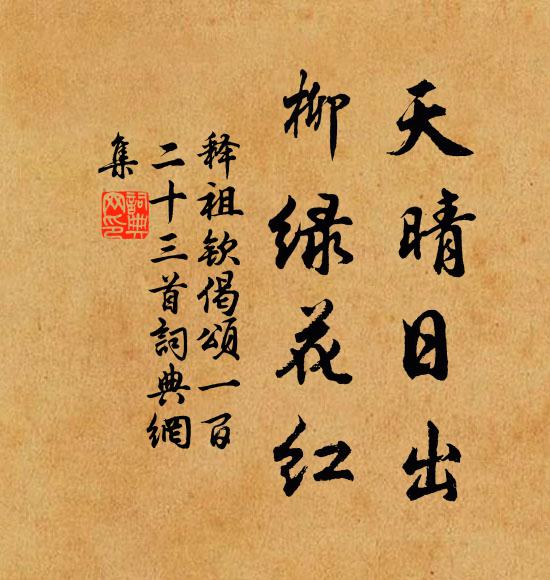 天晴日出
柳绿花红
释祖钦偈頌一百
二十三首詞典網
集
詞典
网印